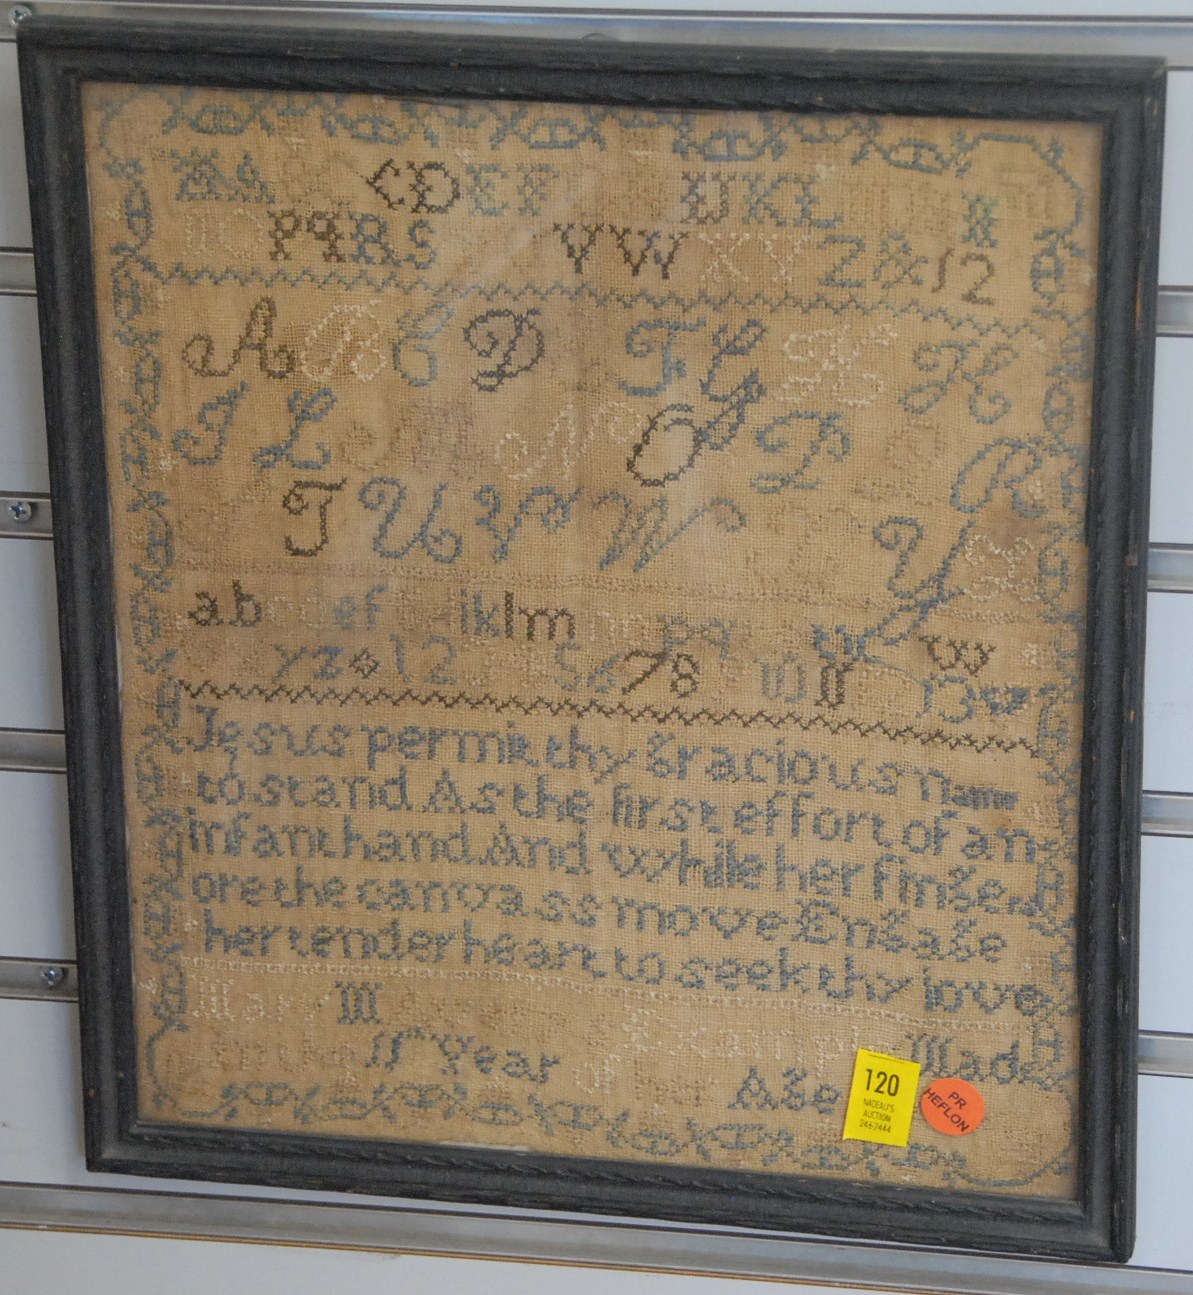 A A C D E F IJ K L N
O P q R S V W X Y Z & 1 2
A B C D F G H K
I L N O P R
T U V W Y
a b e f i k l m p q w
y z 1 2 5 6 7 8 13
Jesus permit thy gracious name
to stand As the first effort of an
infant hand And while her fingers
ore the canvass move Engage
her tender heart to seek thy love
Mary M Exampler Mad
in the 11 Year of her Age
120
NADEAU'S
AUCTION
246-2444
PR
HEFLON